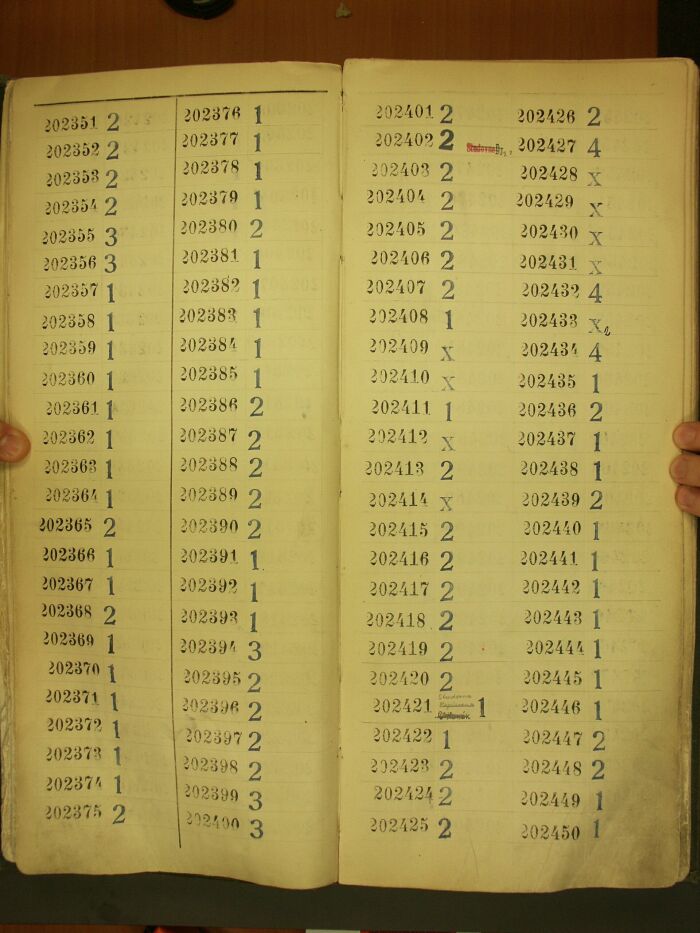 202351 2
202352 2
202353 2
202354 2
202355 3
202356 3
202357 1
202358 1
202359 1
202360 1
202361 1
202362 1
202363 1
202364 1
202365 2
202366 1
202367 1
202368 2
202369 1
202370 1
202371 1
202372 1
202373 1
202374 1
202375 2
202376 1
202377 1
202378 1
202379 1
202380 2
202381 1
202382 1
202383 1
202384 1
202385 1
202386 2
202387 2
202388 2
202389 2
202390 2
202391 1
202392 1
202393 1
202394 3
202395 2
202396 2
202397 2
202398 2
202399 3
202400 3
202401 2
202402 2
202403 2
202404 2
202405 2
202406 2
202407 2
202408 1
202409 X
202410 X
202411 1
202412 X
202413 2
202414 X
202415 2
202416 2
202417 2
202418 2
202419 2
202420 2
202421 1
202422 1
202423 2
202424 2
202425 2
202426 2
202427 4
202428 X
202429 X
202430 X
202431 X
202432 4
202433 X
202434 4
202435 1
202436 2
202437 1
202438 1
202439 2
202440 1
202441 1
202442 1
202443 1
202444 1
202445 1
202446 1
202447 2
202448 2
202449 1
202450 1